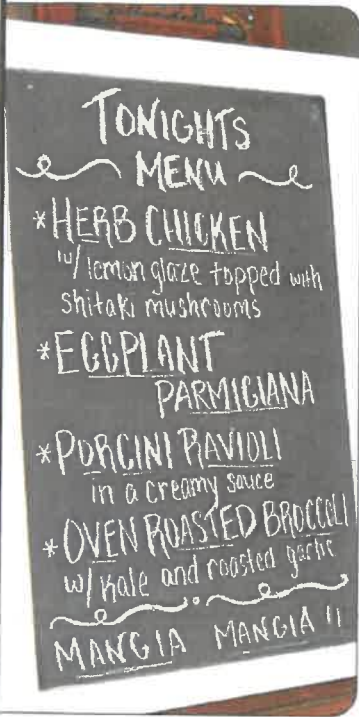 TONIGHTS
MENU
*HERB CHICKEN
w/ lemon glaze topped with
shitaki mushrooms
*EGGPLANT
PARMIGIANA
*PORCINI RAVIOLI
in a creamy sauce
*OVEN ROASTED BROCCOLI
w/ kale and roasted garlic
MANGIA MANGIA !!